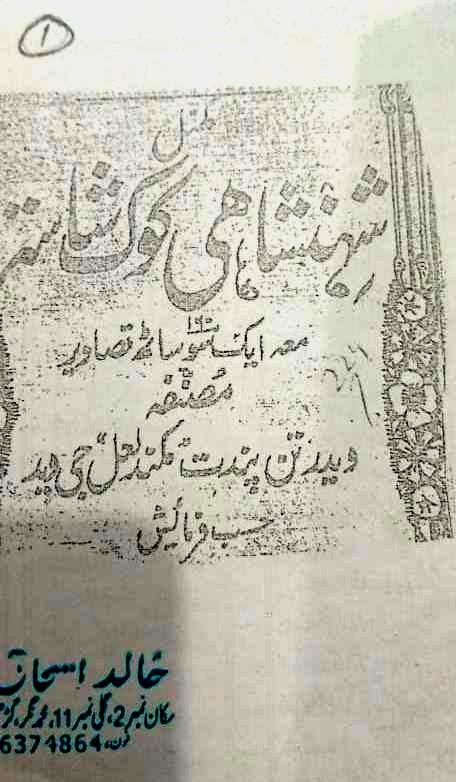 ۱
مکمل
شہنشاہی کوک شاستر
معہ ایک سو ساٹھ تصاویر
۱۶۰
مُصنّفہ
ویدرتن پنڈت مکند لعل جی وید
حسب فرمائش
خالد اسحاق
مکان نمبر 2، گلی نمبر 11، محمد نگر،
فون: 6374864